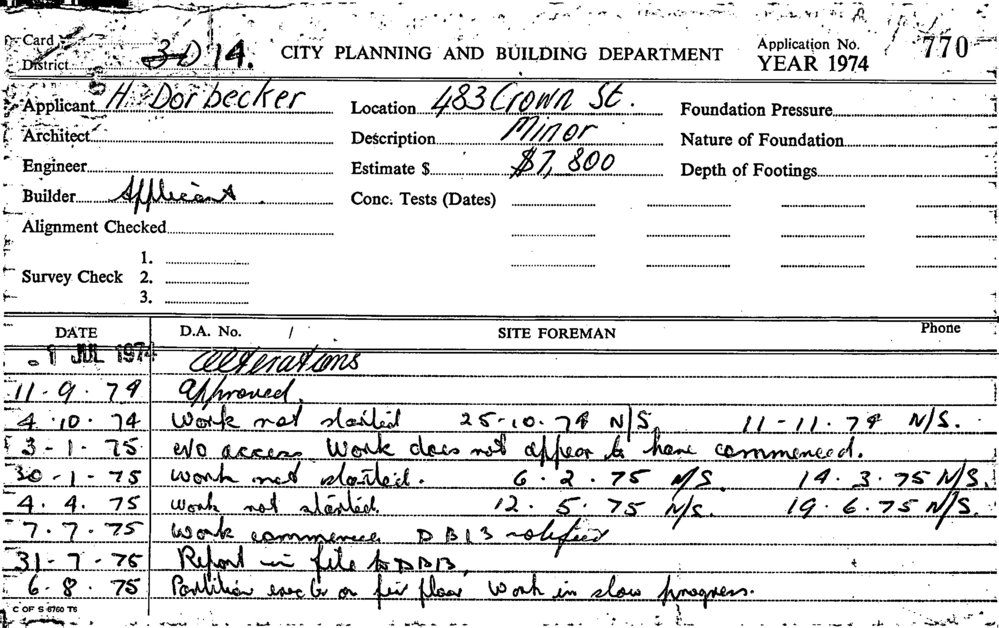 Card
District 3D 14. CITY PLANNING AND BUILDING DEPARTMENT Application No. YEAR 1974 770
Applicant H. Dorbecker Location 483 Crown St. Foundation Pressure
Architect Description Minor Nature of Foundation
Engineer Estimate $ $7,800 Depth of Footings
Builder Applicant Conc. Tests (Dates)
Alignment Checked
1.
Survey Check 2.
3.
DATE D.A. No. / SITE FOREMAN Phone
1 JUL 1974 Alterations
11-9-74 Approved
4.10.74 Work not started 25-10.74 N/S. 11-11.74 N/S.
3-1-75 No access. Work does not appear to have commenced.
30-1-75 Work not started. 6.2.75 N/S. 14.3.75 N/S.
4.4.75 Work not started. 12.5.75 N/S. 19.6.75 N/S.
7.7.75 Work commenced DB13 notified
31-7-75 Report in file to
6.8.75 Partition on floor Work in slow progress.
C OF S 6760 T6